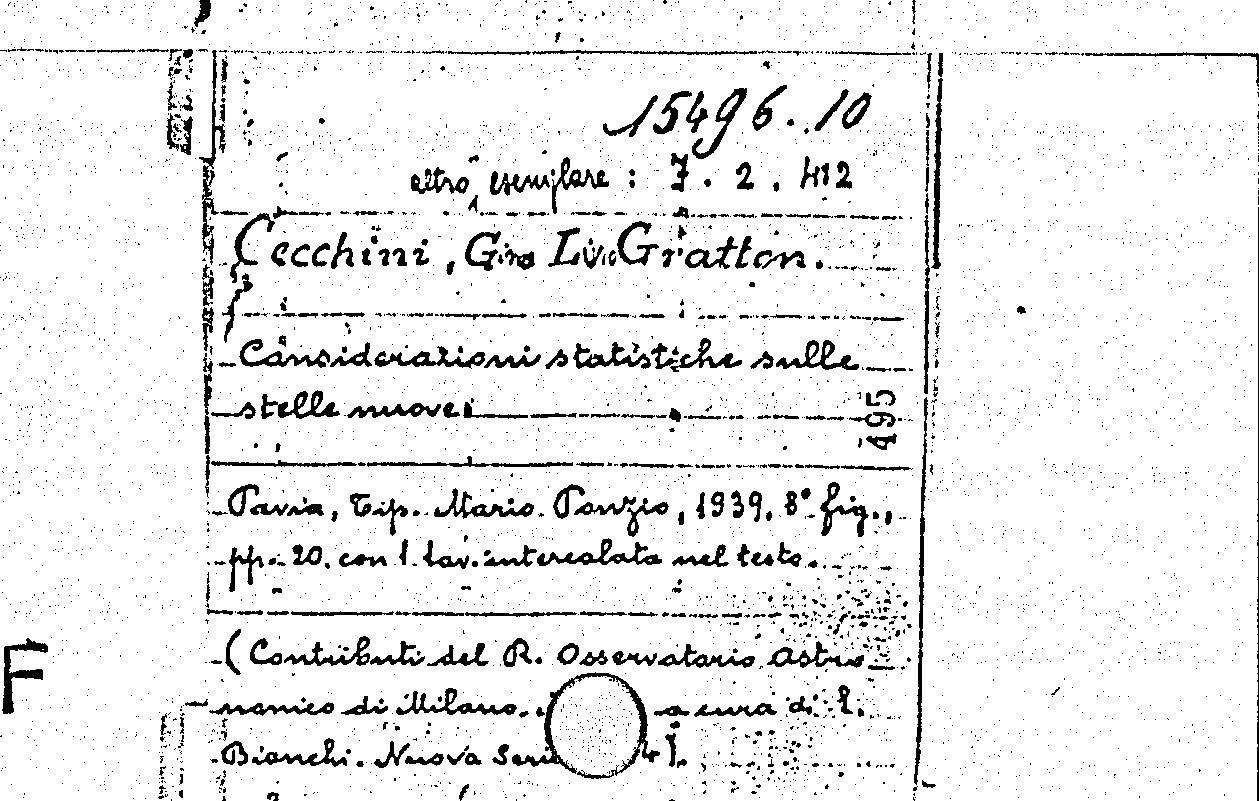 15496.10
altro esemplare : 7. 2. 412
Cecchini, Gino Livio Gratton.
Considerazioni statistiche sulle
stelle nuove.
495
Pavia, Tip. Mario Ponzio, 1939. 8° fig.,
pp. 20. con 1 tav. intercalata nel testo.
(Contributi del R. Osservatorio Astro
nomico di Milano. a cura di E.
Bianchi. Nuova Serie 4).
F